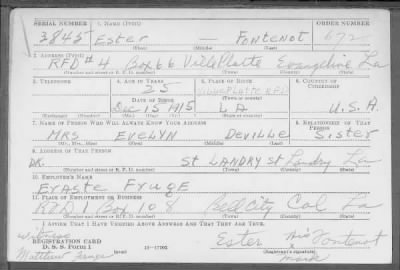 SERIAL NUMBER 1. NAME (Print) ORDER NUMBER
3845 Ester — Fontenot 672
(First) (Middle) (Last)
2. ADDRESS (Print)
RFD #4 Box 66 Ville Platte Evangeline La
(Number and street or R. F. D. number) (Town) (County) (State)
3. TELEPHONE 4. AGE IN YEARS 5. PLACE OF BIRTH 6. COUNTRY OF CITIZENSHIP
25 Ville Platte RFD
DATE OF BIRTH
Dec 15 1915 LA U.S.A.
(Exchange) (Number) (Mo.) (Day) (Yr.) (State or country)
7. NAME OF PERSON WHO WILL ALWAYS KNOW YOUR ADDRESS 8. RELATIONSHIP OF THAT PERSON
MRS EVELYN DEVILLE Sister
(Mr., Mrs., Miss) (First) (Middle) (Last)
9. ADDRESS OF THAT PERSON
DK. St LANDRY St Landry La
(Number and street or R. F. D. number) (Town) (County) (State)
10. EMPLOYER'S NAME
Eraste Fruge
11. PLACE OF EMPLOYMENT OR BUSINESS
RFD 1 Box 108 Bell City Cal La
(Number and street or R. F. D. number) (Town) (County) (State)
I AFFIRM THAT I HAVE VERIFIED ABOVE ANSWERS AND THAT THEY ARE TRUE.
witness
REGISTRATION CARD
D. S. S. Form 1 16—17105 Ester his Fontenot
(Registrant's signature)
mark